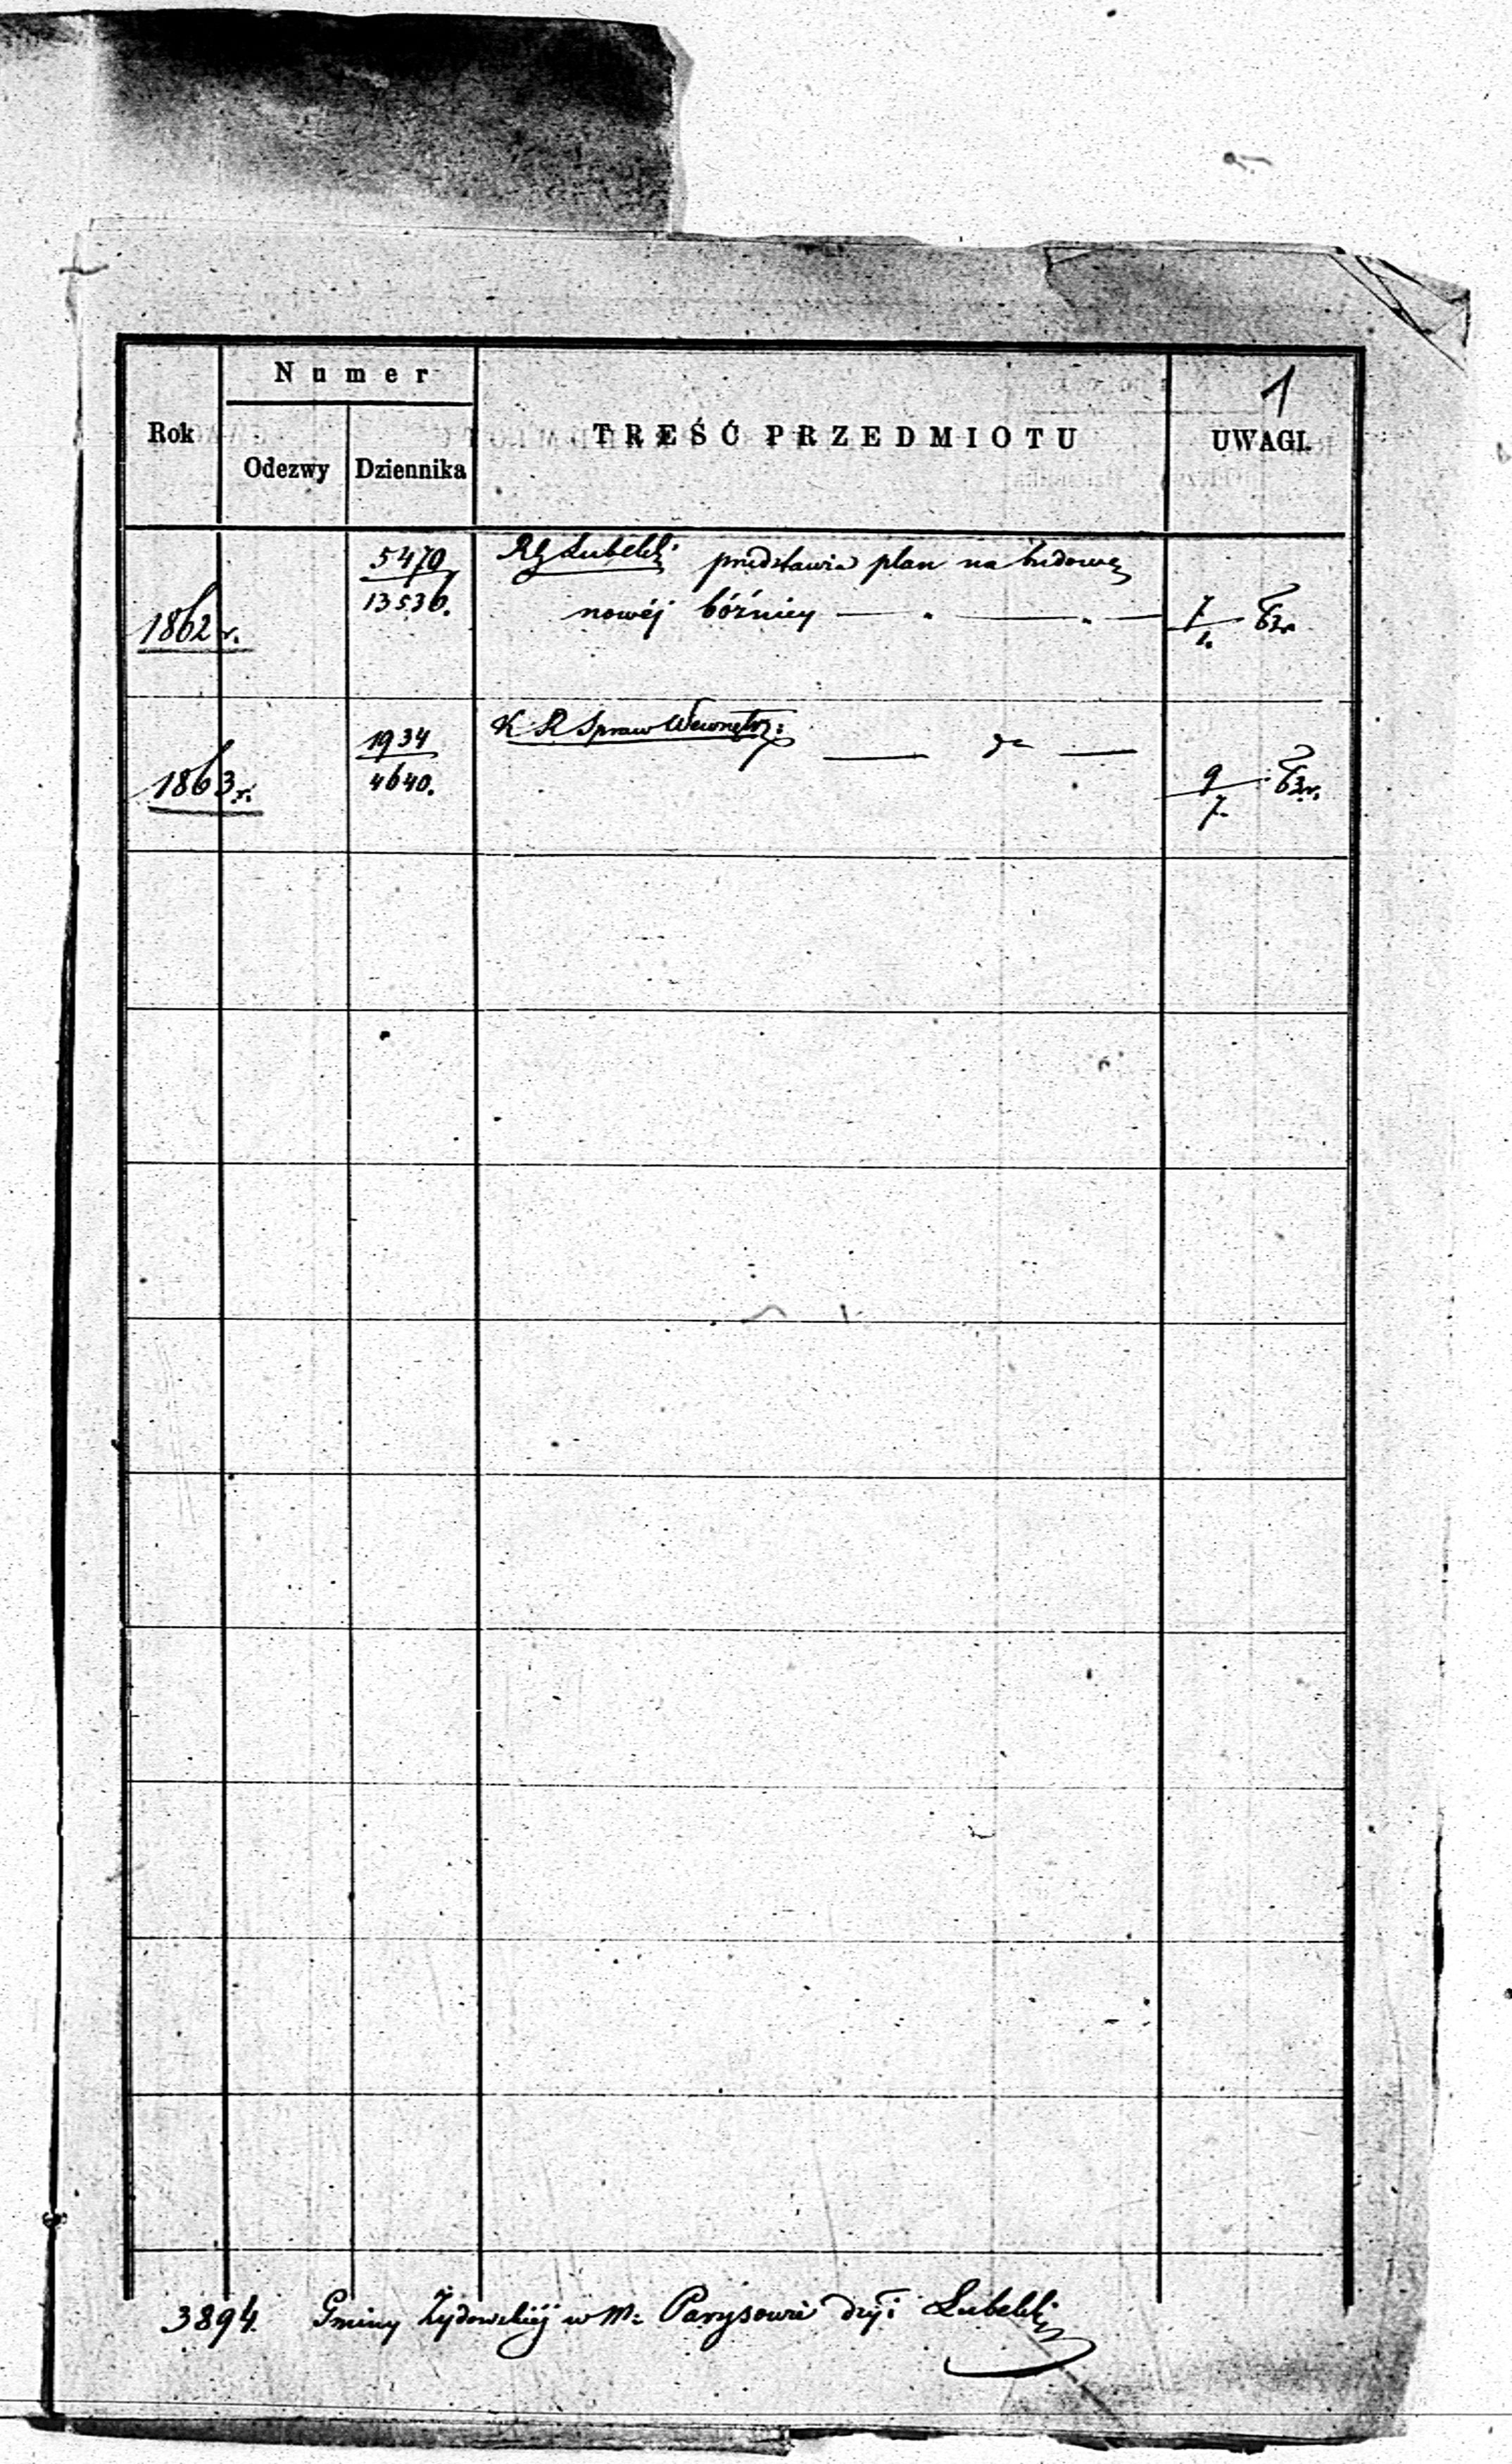 1
Numer
Rok
Odezwy
Dziennika
TREŚĆ PRZEDMIOTU
UWAGI.
1862 r.
5470
13536.
RG Lubelski przedstawia plan na budowę
nowéj bóźnicy
7/1. 63r
1863 r.
1934
4640.
K R Spraw Wewnętrz:
9/7. 63r.
3894. Gminy Żydowskiéj w M: Parysowie Lubelski